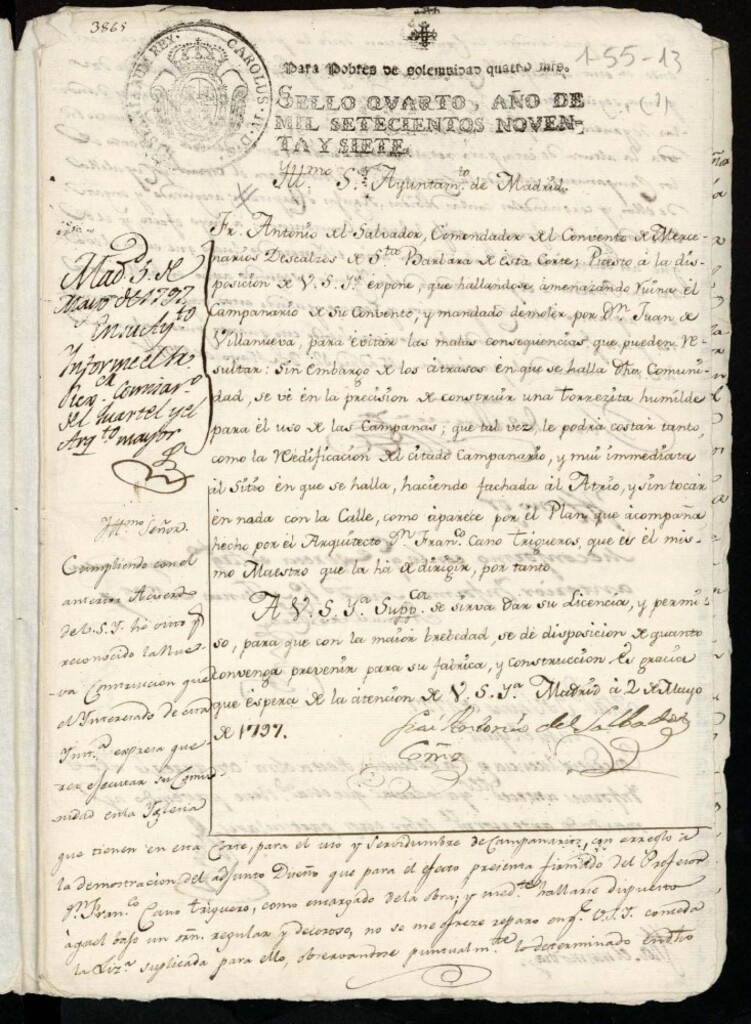 3865
CAROLUS IV D
1-55-13
Para Pobres de solemnidad quatro mrs.
SELLO QVARTO, AÑO DE
MIL SETECIENTOS NOVEN-
TA Y SIETE.
Yllmo. Sr. Ayuntamto. de Madrid.
Fr. Antonio del Salvador, Comendador del Convento de Merce-
narios Descalzos de Sta. Barbara de esta Corte; Puesto á la dis-
posicion de V. S. Ya. expone, que hallandose amenazando ruina el
Campanario de su Convento, y mandado demoler por Dn. Juan de
Villanueva, para evitar las malas consequencias que pueden re-
sultar: Sin embargo de los atrasos en que se halla dha. Comuni-
dad, se vé en la precision de construir una torrezita humilde
para él uso de las Campanas; que tal vez, le podrá costar tanto,
como la redificacion del citado Campanario, y mui immediata
ál sitio en que se halla, haciendo fachada ál Atrio, y sin tocar
en nada con la Calle, como aparece por él Plan que acompaña
hecho por él Arquitecto Dn. Franco. Cano Trigueros, que és él mis-
mo Maestro que la ha de dirigir, por tanto
A V. S. Ya. Suppca. se sirva dar su Licencia, y permi-
so, para que con la maior brebedad, se dé disposicion de quanto
convenga prevenir para su fabrica, y construccion Es gracia
que éspera de la atencion de V. S. Ya. Madrid á 2 de Mayo
de 1797.
Frai Antonio del Salbador
Comor.
Madd. 5. de
Mayo de 1797
En su Aytto.
Informe el Sr.
Rexor. Comisaro.
del Quartel y el
Arqto. mayor
Yllmo. Señor.
Cumpliendo con el
anterior Acuerdo
de V. S. Y. he
reconocido la nue-
va Construccion que
el Interesado de esta
Instª. expresa que-
rer executar su Comu-
nidad en la Yglesia
que tienen en esta Corte, para el uso y servidumbre de Campanario, con arreglo á
la demostracion del adjunto Diseño que para el efecto presenta firmado del Profesor
Dn. Franco. Cano Triguero, como encargado de la obra; y medte. hallarse dispuesto
áquel bajo un orn. regular y decoroso, no se me ofreze reparo en qe. V. S. Y. conceda
la Liza. suplicada para ello, observandose puntualmte. lo determinado